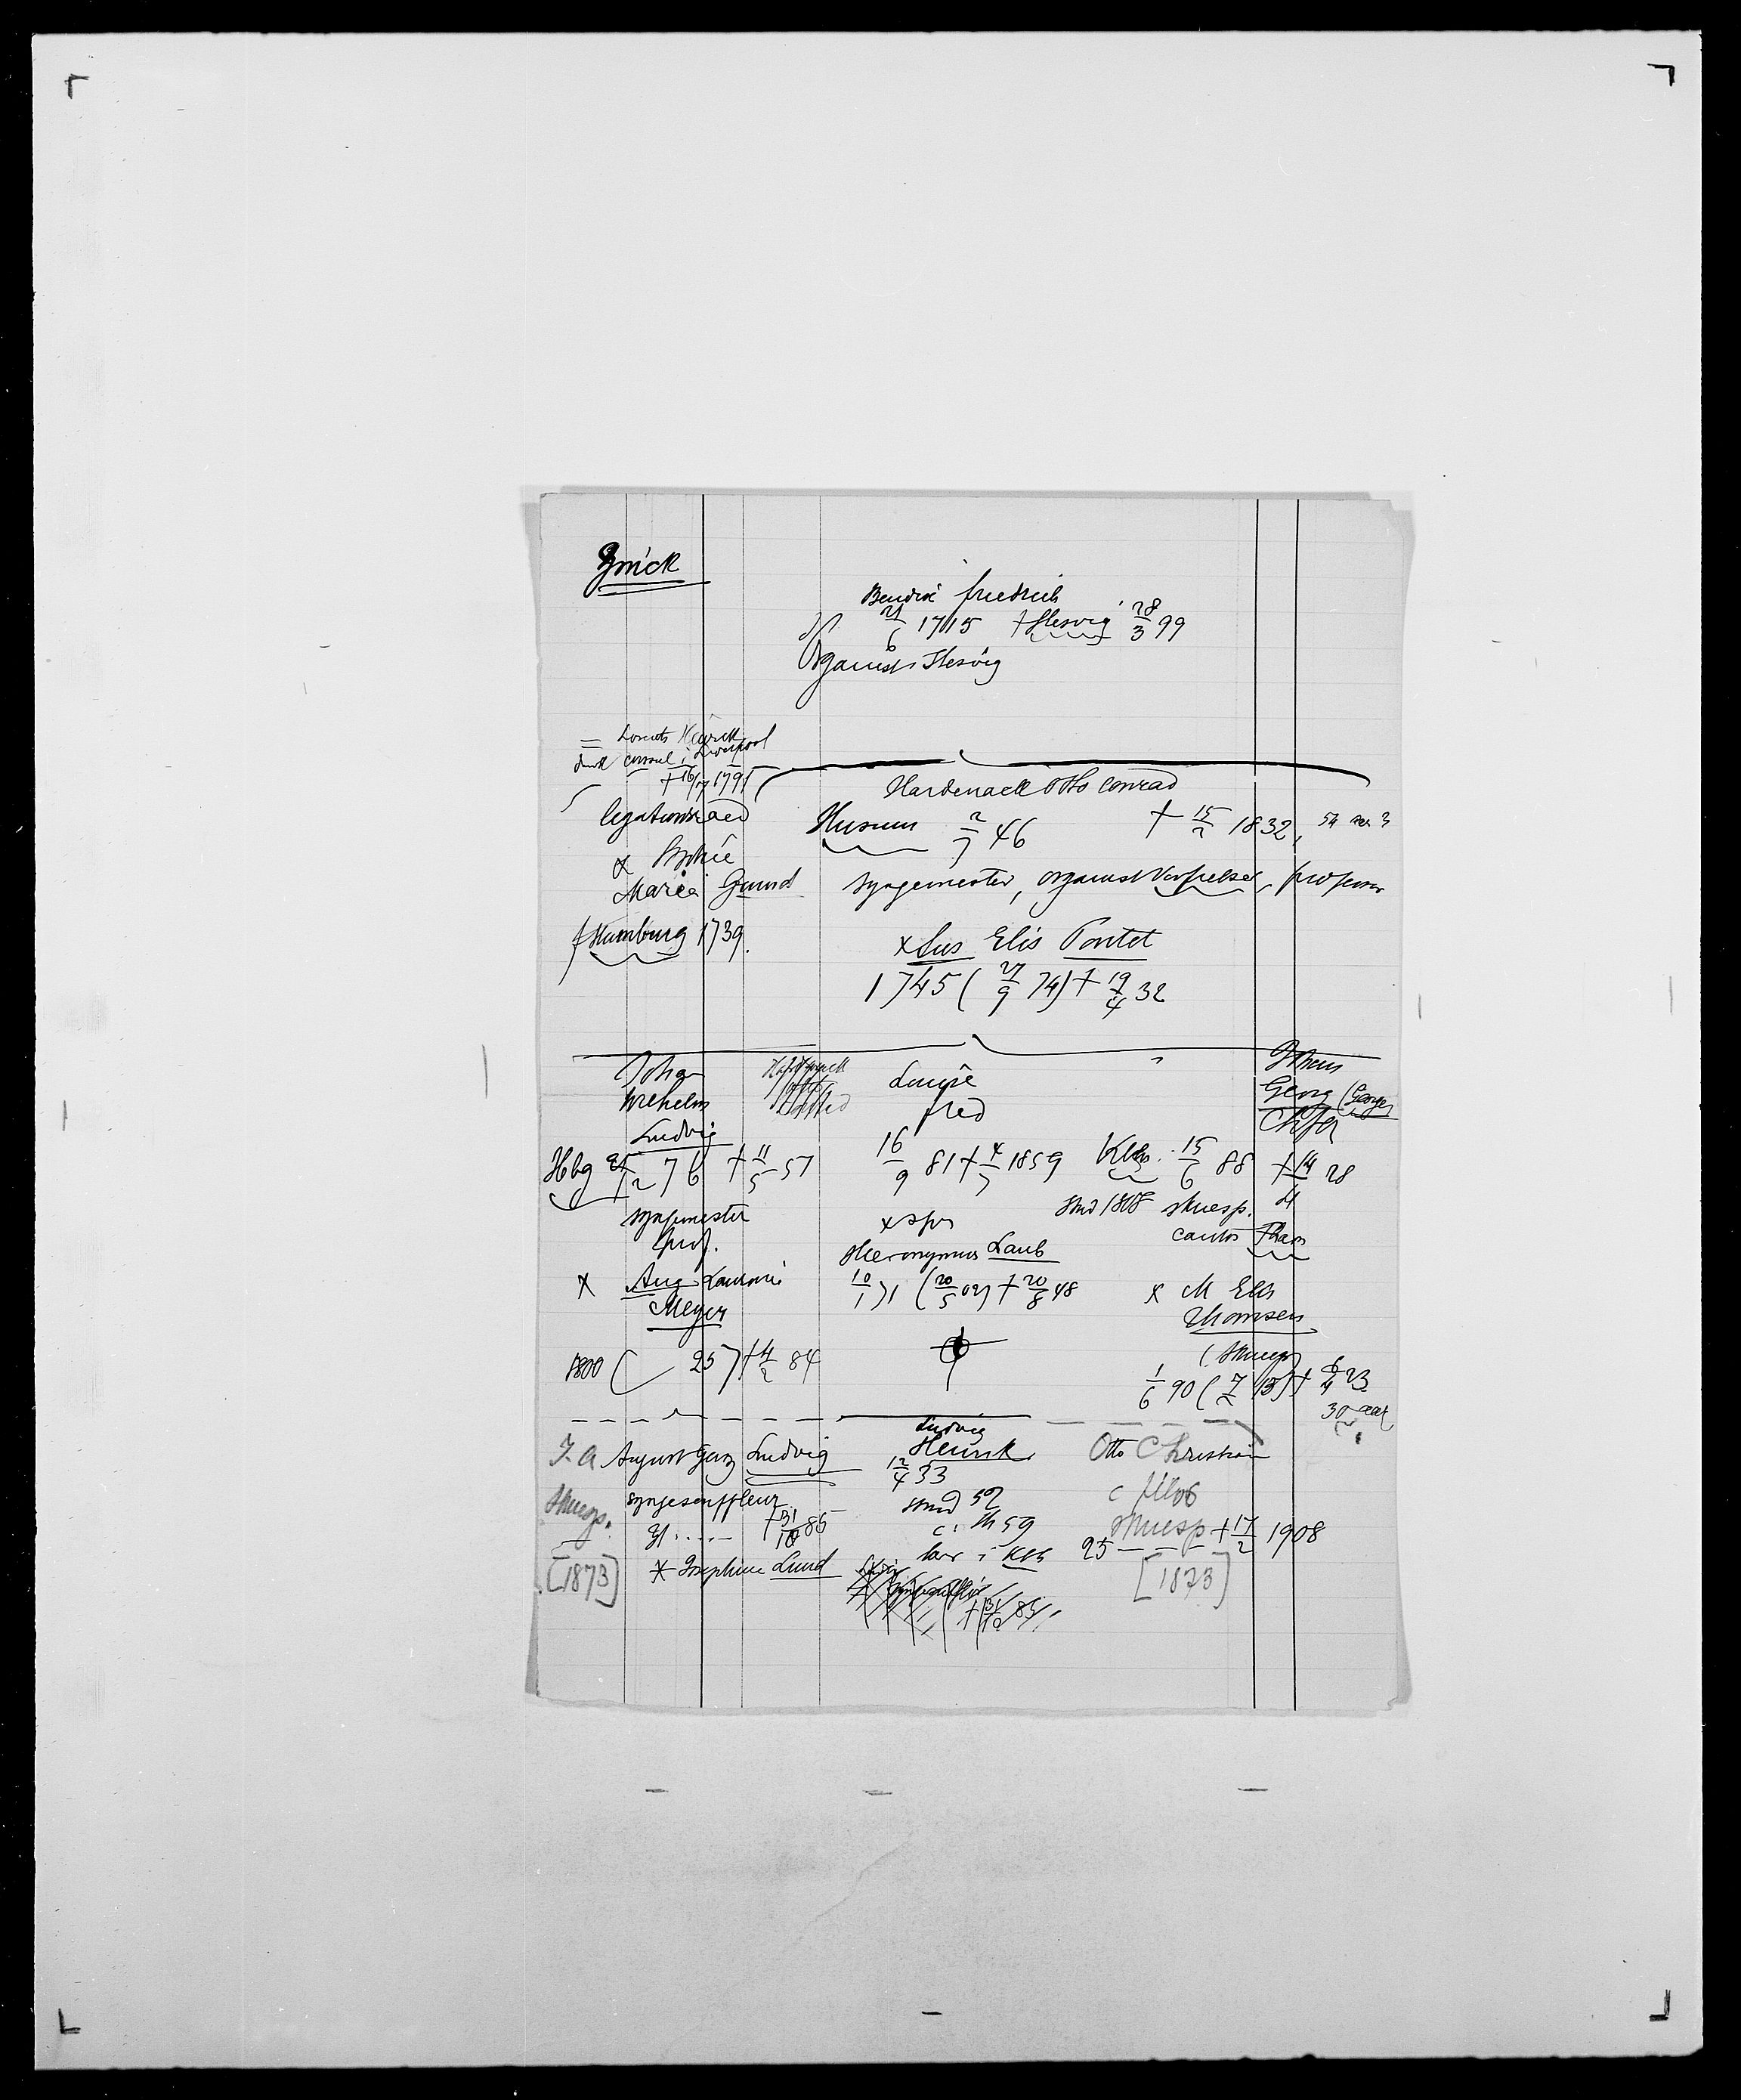 Zinck
Bendix friedrich
21/6 1715 † Slesvig 28/3 99
Organist i Slesvig
= Lorents Henrik
dansk consul i Liverpool
† 16/7 1795
legationsraad
x Sophie
Maria Grund
Hamburg 1739.
Hardenack Otto Conrad
Husum 2/7 46 † 15/2 1832,
syngemester, organist Vorfrelser, professor
x Sus Elis Pontet
1745 (27/9 74) † 19/4 32
Johan
Wilhelm
Ludvig
Hbg 2/2 76 † 11/5 57
syngemester
prof.
x Aug Laurine
Meyer
1800 ( 25) † 4/2 84
Louise
fred
16/9 81 † 4/7 1859
x spr
Hieronymus Laub
10/1 71 (20/5 02) † 20/8 48
Georg (George)
Chfr
Kbh. 15/6 88 † 14/4 28
stud 1808 skuesp.
cantor
x M Elis
Thomsen
(skuesp)
1/6 90 (7/2 13) † 6/4 23
30 aar
F. A August Georg Ludvig
Skuesp.
syngesouffleur
† 31/10 85
x Josephine Lund
[1873]
Ludvig
Henrik
12/4 33
stud 52
c. th 59
lær i Kbh
† 31/10 85
Otto Christian
c filos
skuesp † 17/2 1908
25
[1873]